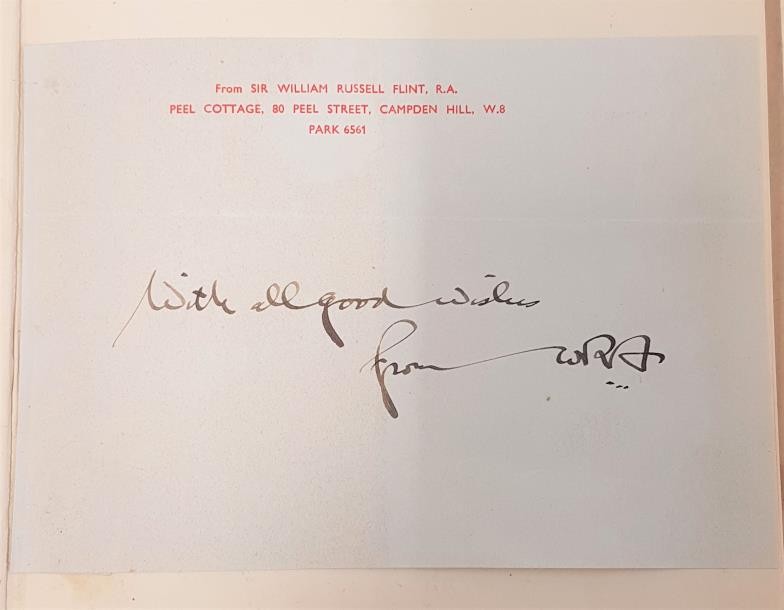 From SIR WILLIAM RUSSELL FLINT, R.A.
PEEL COTTAGE, 80 PEEL STREET, CAMPDEN HILL, W.8
PARK 6561
With all good wishes
from WRF